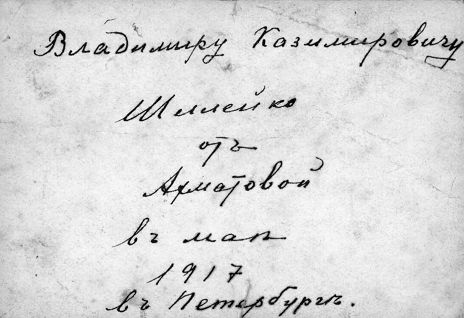 Владимиру Казимировичу
Шилейко
отъ
Ахматовой
въ маѣ
1917
въ Петербургѣ.